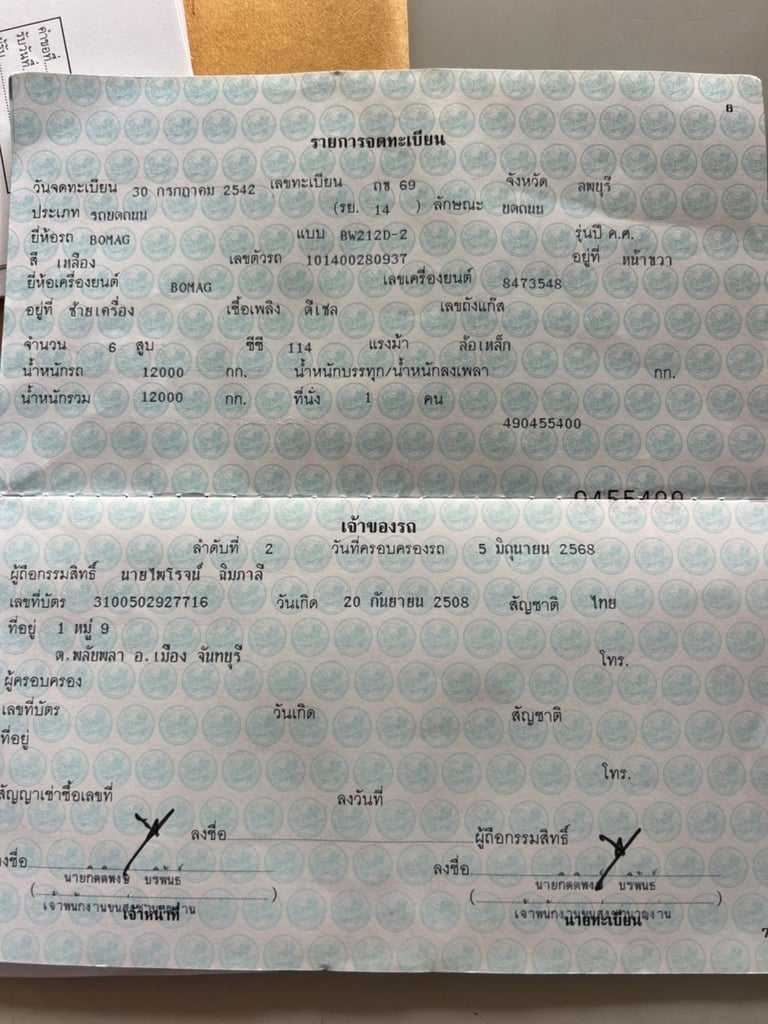 คำขอที่
รับวันที่
8
รายการจดทะเบียน
วันจดทะเบียน 30 กรกฎาคม 2542 เลขทะเบียน ถข 69 จังหวัด ลพบุรี
ประเภท รถบดถนน (รย. 14 ) ลักษณะ บดถนน
ยี่ห้อรถ BOMAG แบบ BW212D-2 รุ่นปี ค.ศ.
สี เหลือง เลขตัวรถ 101400280937 อยู่ที่ หน้าขวา
ยี่ห้อเครื่องยนต์ BOMAG เลขเครื่องยนต์ 8473548
อยู่ที่ ซ้ายเครื่อง เชื้อเพลิง ดีเซล เลขถังแก๊ส
จำนวน 6 สูบ ซีซี 114 แรงม้า ล้อเหล็ก
น้ำหนักรถ 12000 กก. น้ำหนักบรรทุก/น้ำหนักลงเพลา กก.
น้ำหนักรวม 12000 กก. ที่นั่ง 1 คน
490455400
เจ้าของรถ
ลำดับที่ 2 วันที่ครอบครองรถ 5 มิถุนายน 2568
ผู้ถือกรรมสิทธิ์ นายไพโรจน์ ฉิมภาลี
เลขที่บัตร 3100502927716 วันเกิด 20 กันยายน 2508 สัญชาติ ไทย
ที่อยู่ 1 หมู่ 9
ต.พลับพลา อ.เมือง จันทบุรี โทร.
ผู้ครอบครอง
เลขที่บัตร วันเกิด สัญชาติ
ที่อยู่
โทร.
สัญญาเช่าซื้อเลขที่ ลงวันที่
ลงชื่อ ผู้ถือกรรมสิทธิ์
ลงชื่อ ลงชื่อ
บริพันธ์ บริพันธ์
เจ้าหน้าที่ นายทะเบียน
7